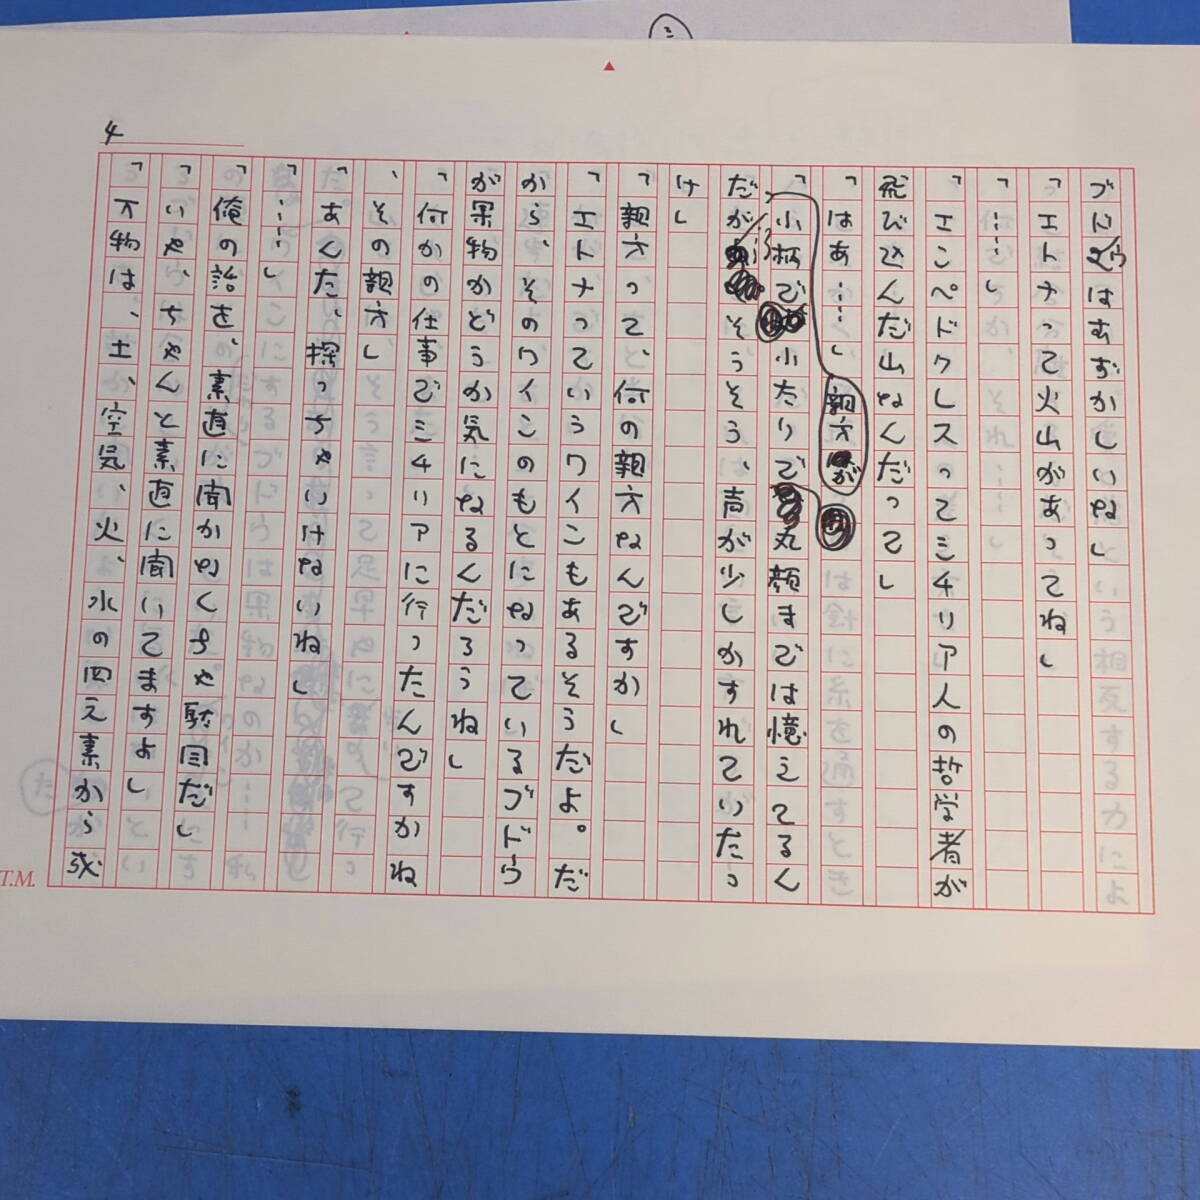 4
ブドウはむずかしいね」
「エトナって火山があってね」
「……」
「エンペドクレスってシチリア人の哲学者が
飛び込んだ山なんだって」
「はあ……」
親方が
「小柄で小太りで丸顔までは憶えてるん
だが……そうそう、声が少しかすれていたっ
け」
「親方って、何の親方なんですか」
「エトナっていうワインもあるそうだよ。だ
から、そのワインのもとになっているブドウ
が果物かどうか気になるんだろうね」
「何かの仕事でシチリアに行ったんですかね
、その親方」
「あんた、探っちゃいけないね」
「……」
「俺の話を、素直に聞かなくちゃ駄目だ」
「いや、ちゃんと素直に聞いてますよ」
「万物は、土、空気、火、水の四元素から成
T.M.